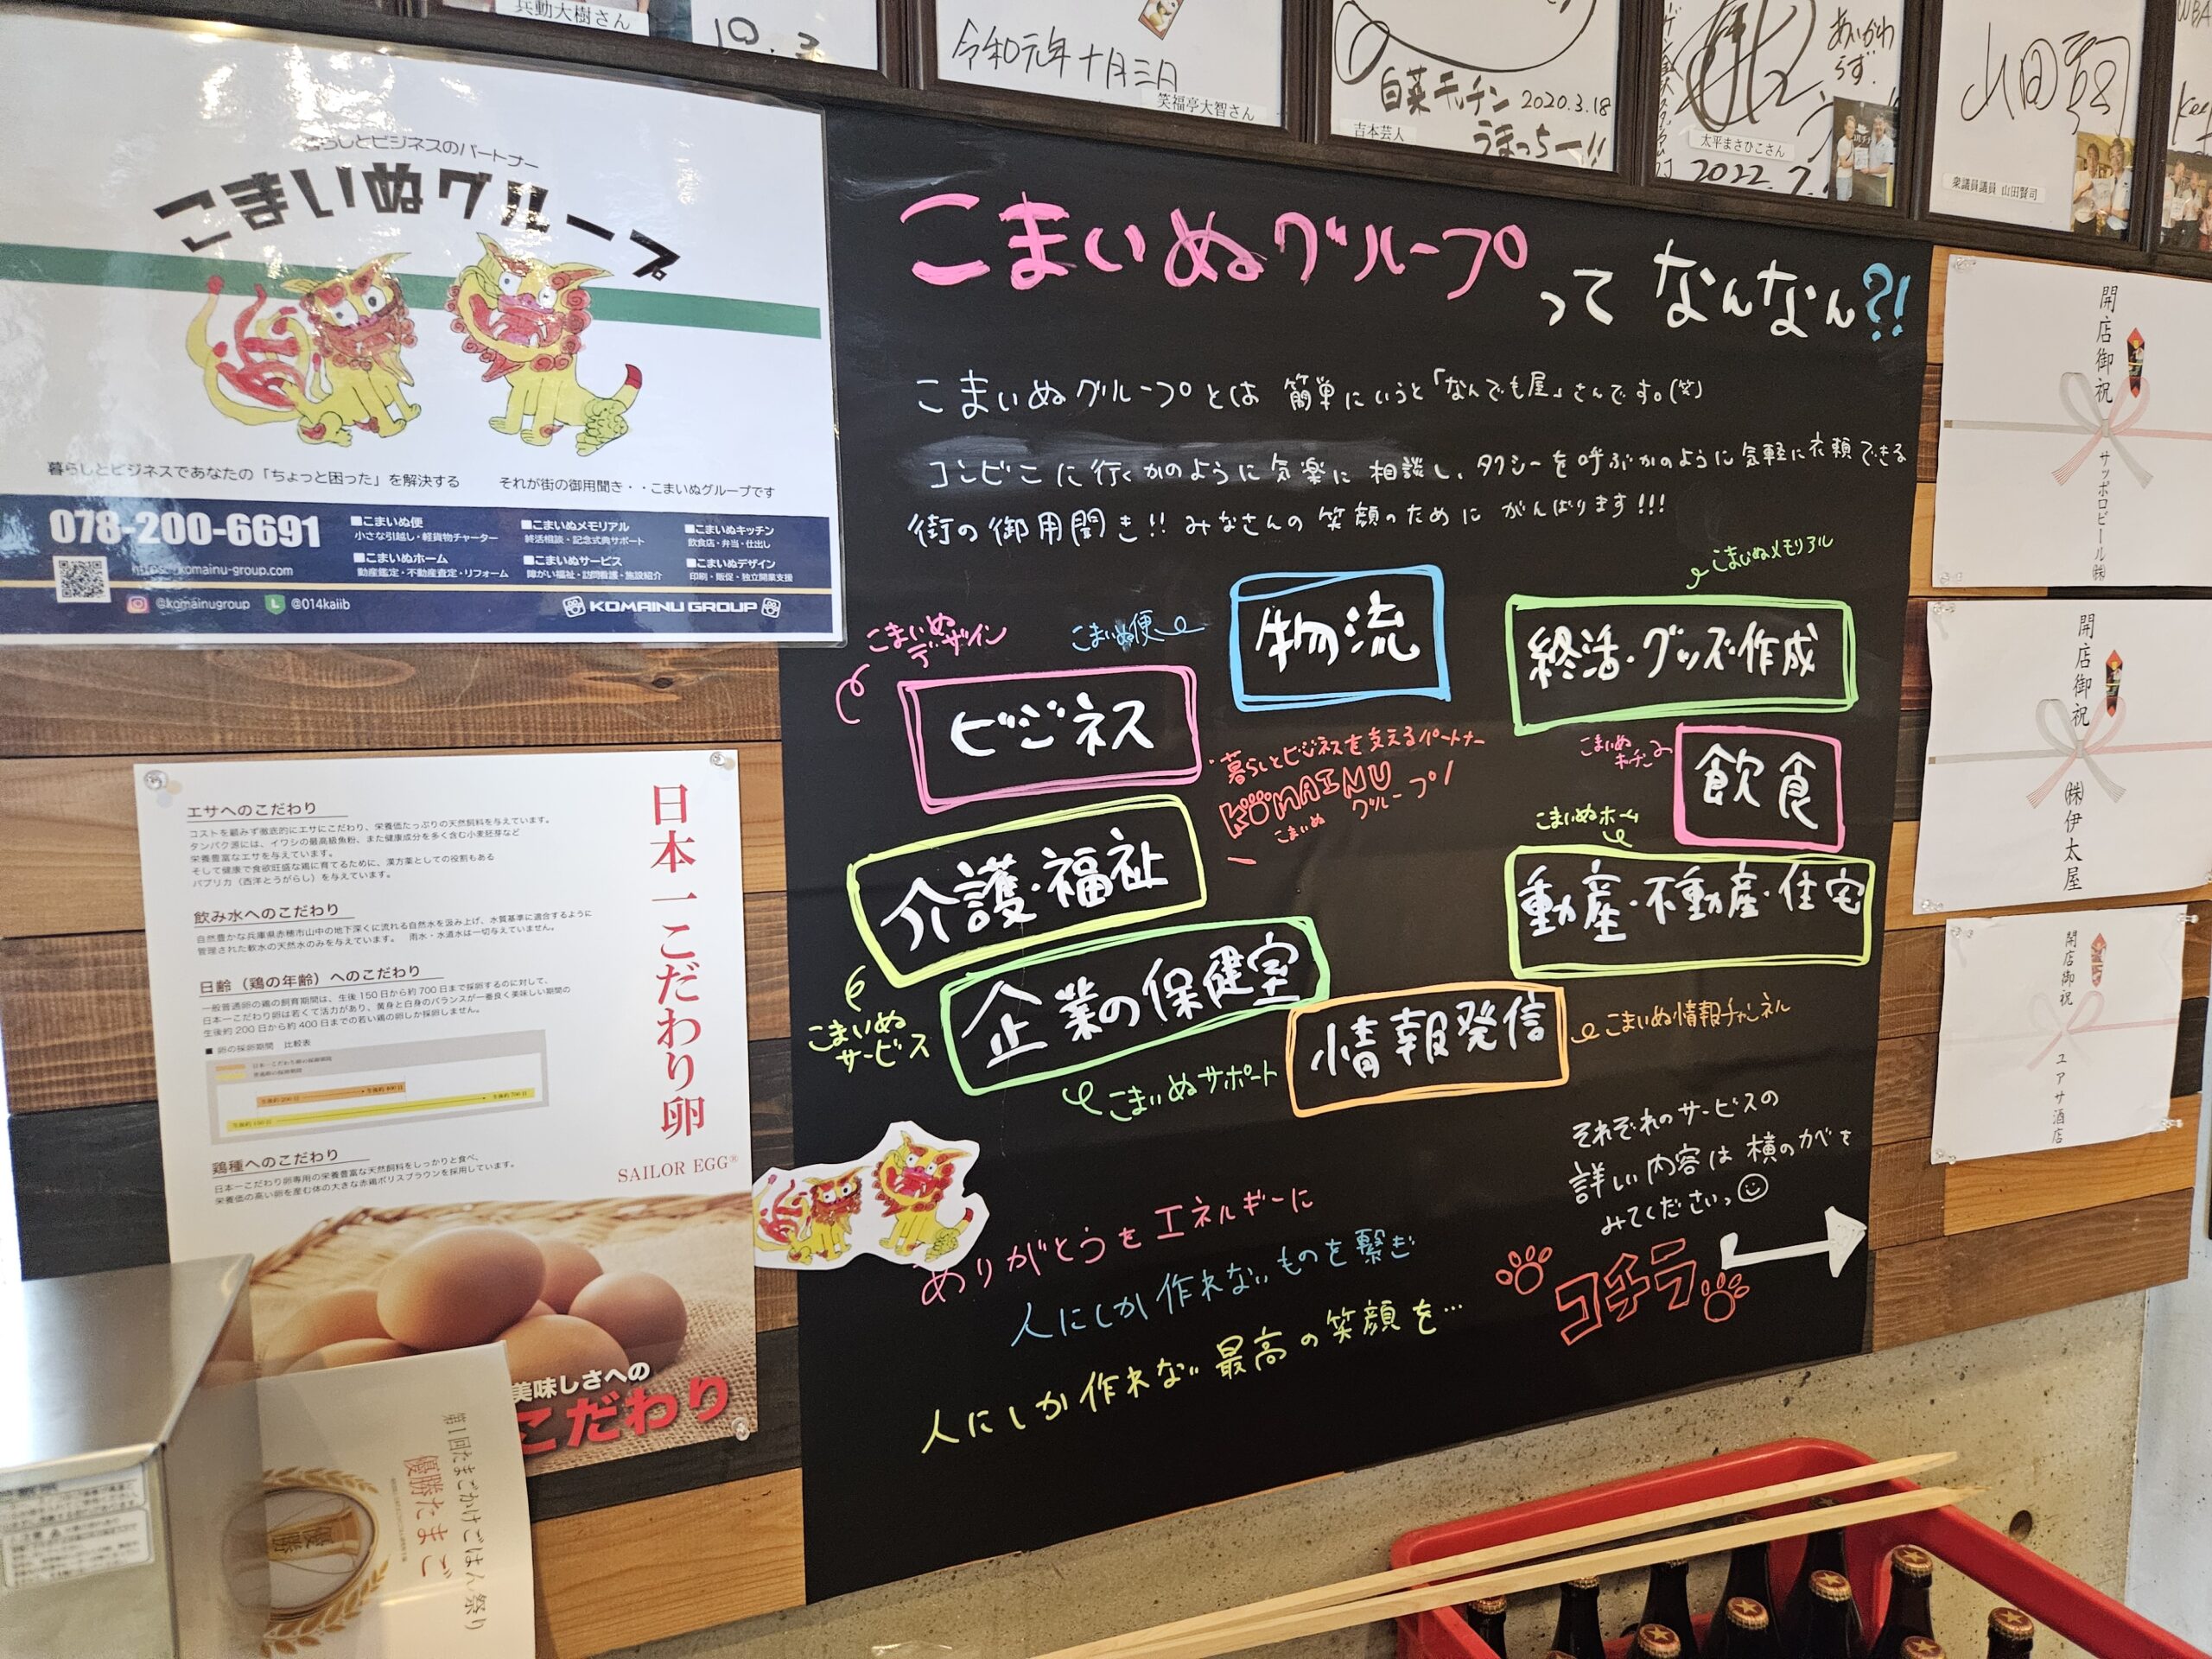 兵動大樹さん
10.3
令和元年十月三日
笑福亭大智さん
白菜キッチン 2020.3.18
うまっちー!!
吉本芸人
あいがわらず.
太平まさひこさん
2022.7.
衆議員議員 山田賢司
暮らしとビジネスのパートナー
こまいぬグループ
暮らしとビジネスであなたの「ちょっと困った」を解決する　それが街の御用聞き・・こまいぬグループです
078-200-6691
https://komainu-group.com
@komainugroup @014kaiib
■こまいぬ便
小さな引越し・軽貨物チャーター
■こまいぬホーム
動産鑑定・不動産査定・リフォーム
■こまいぬメモリアル
終活相談・記念式典サポート
■こまいぬサービス
障がい福祉・訪問看護・施設紹介
■こまいぬキッチン
飲食店・弁当・仕出し
■こまいぬデザイン
印刷・販促・独立開業支援
KOMAINU GROUP
こまいぬグループ
って なんなん?!
こまいぬグループとは 簡単にいうと「なんでも屋」さんです。(笑)
コンビニに行くかのように気楽に相談し、タクシーを呼ぶかのように気軽に依頼できる
街の御用聞き!! みなさんの笑顔のために がんばります!!!
こまいぬメモリアル
終活・グッズ作成
こまいぬ便
物流
こまいぬ
デザイン
ビジネス
"暮らしとビジネスを支えるパートナー
KOMAINU
こまいぬ グループ!
こまいぬ
キッチン
飲食
こまいぬホーム
動産・不動産・住宅
介護・福祉
こまいぬ
サービス
企業の保健室
こまいぬサポート
情報発信
こまいぬ情報チャンネル
それぞれのサービスの
詳しい内容は横のカベを
みてくださいっ
コチラ
ありがとうをエネルギーに
人にしか作れないものを繋ぎ
人にしか作れない最高の笑顔を…
日本一こだわり卵
SAILOR EGG®
エサへのこだわり
コストを顧みず徹底的にエサにこだわり、栄養価たっぷりの天然飼料を与えています。
タンパク源には、イワシの最高級魚粉、また健康成分を多く含む小麦胚芽など
栄養豊富なエサを与えています。
そして健康で食欲旺盛な鶏に育てるために、漢方薬としての役割もある
パプリカ（西洋とうがらし）を与えています。
飲み水へのこだわり
自然豊かな兵庫県赤穂市山中の地下深くに流れる自然水を汲み上げ、水質基準に適合するように
管理された軟水の天然水のみを与えています。　雨水・水道水は一切与えていません。
日齢（鶏の年齢）へのこだわり
一般普通卵の鶏の飼育期間は、生後150日から約700日まで採卵するのに対して、
日本一こだわり卵は若くて活力があり、黄身と白身のバランスが一番良く美味しい期間の
生後約200日から約400日までの若い鶏の卵しか採卵しません。
■ 卵の採卵期間　比較表
日本一こだわり卵の採卵期間
普通卵の採卵期間
生後約200日 生後約400日
生後約150日 生後約700日
鶏種へのこだわり
日本一こだわり卵専用の栄養豊富な天然飼料をしっかりと食べ、
栄養価の高い卵を産む体の大きな赤鶏ボリスブラウンを採用しています。
美味しさへの
こだわり
第1回たまごかけごはん祭り
優勝たまご
優勝
開店御祝
サッポロビール㈱
開店御祝
㈱伊太屋
開店御祝
ユアサ酒店